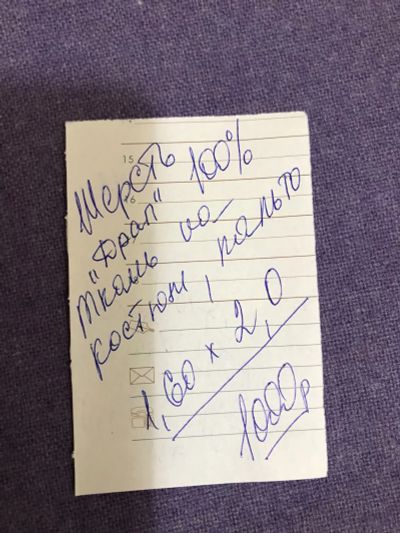 15
16
Шерсть 100%
"Драп"
ткань на
костюм, пальто
1,60 x 2,0
1000р